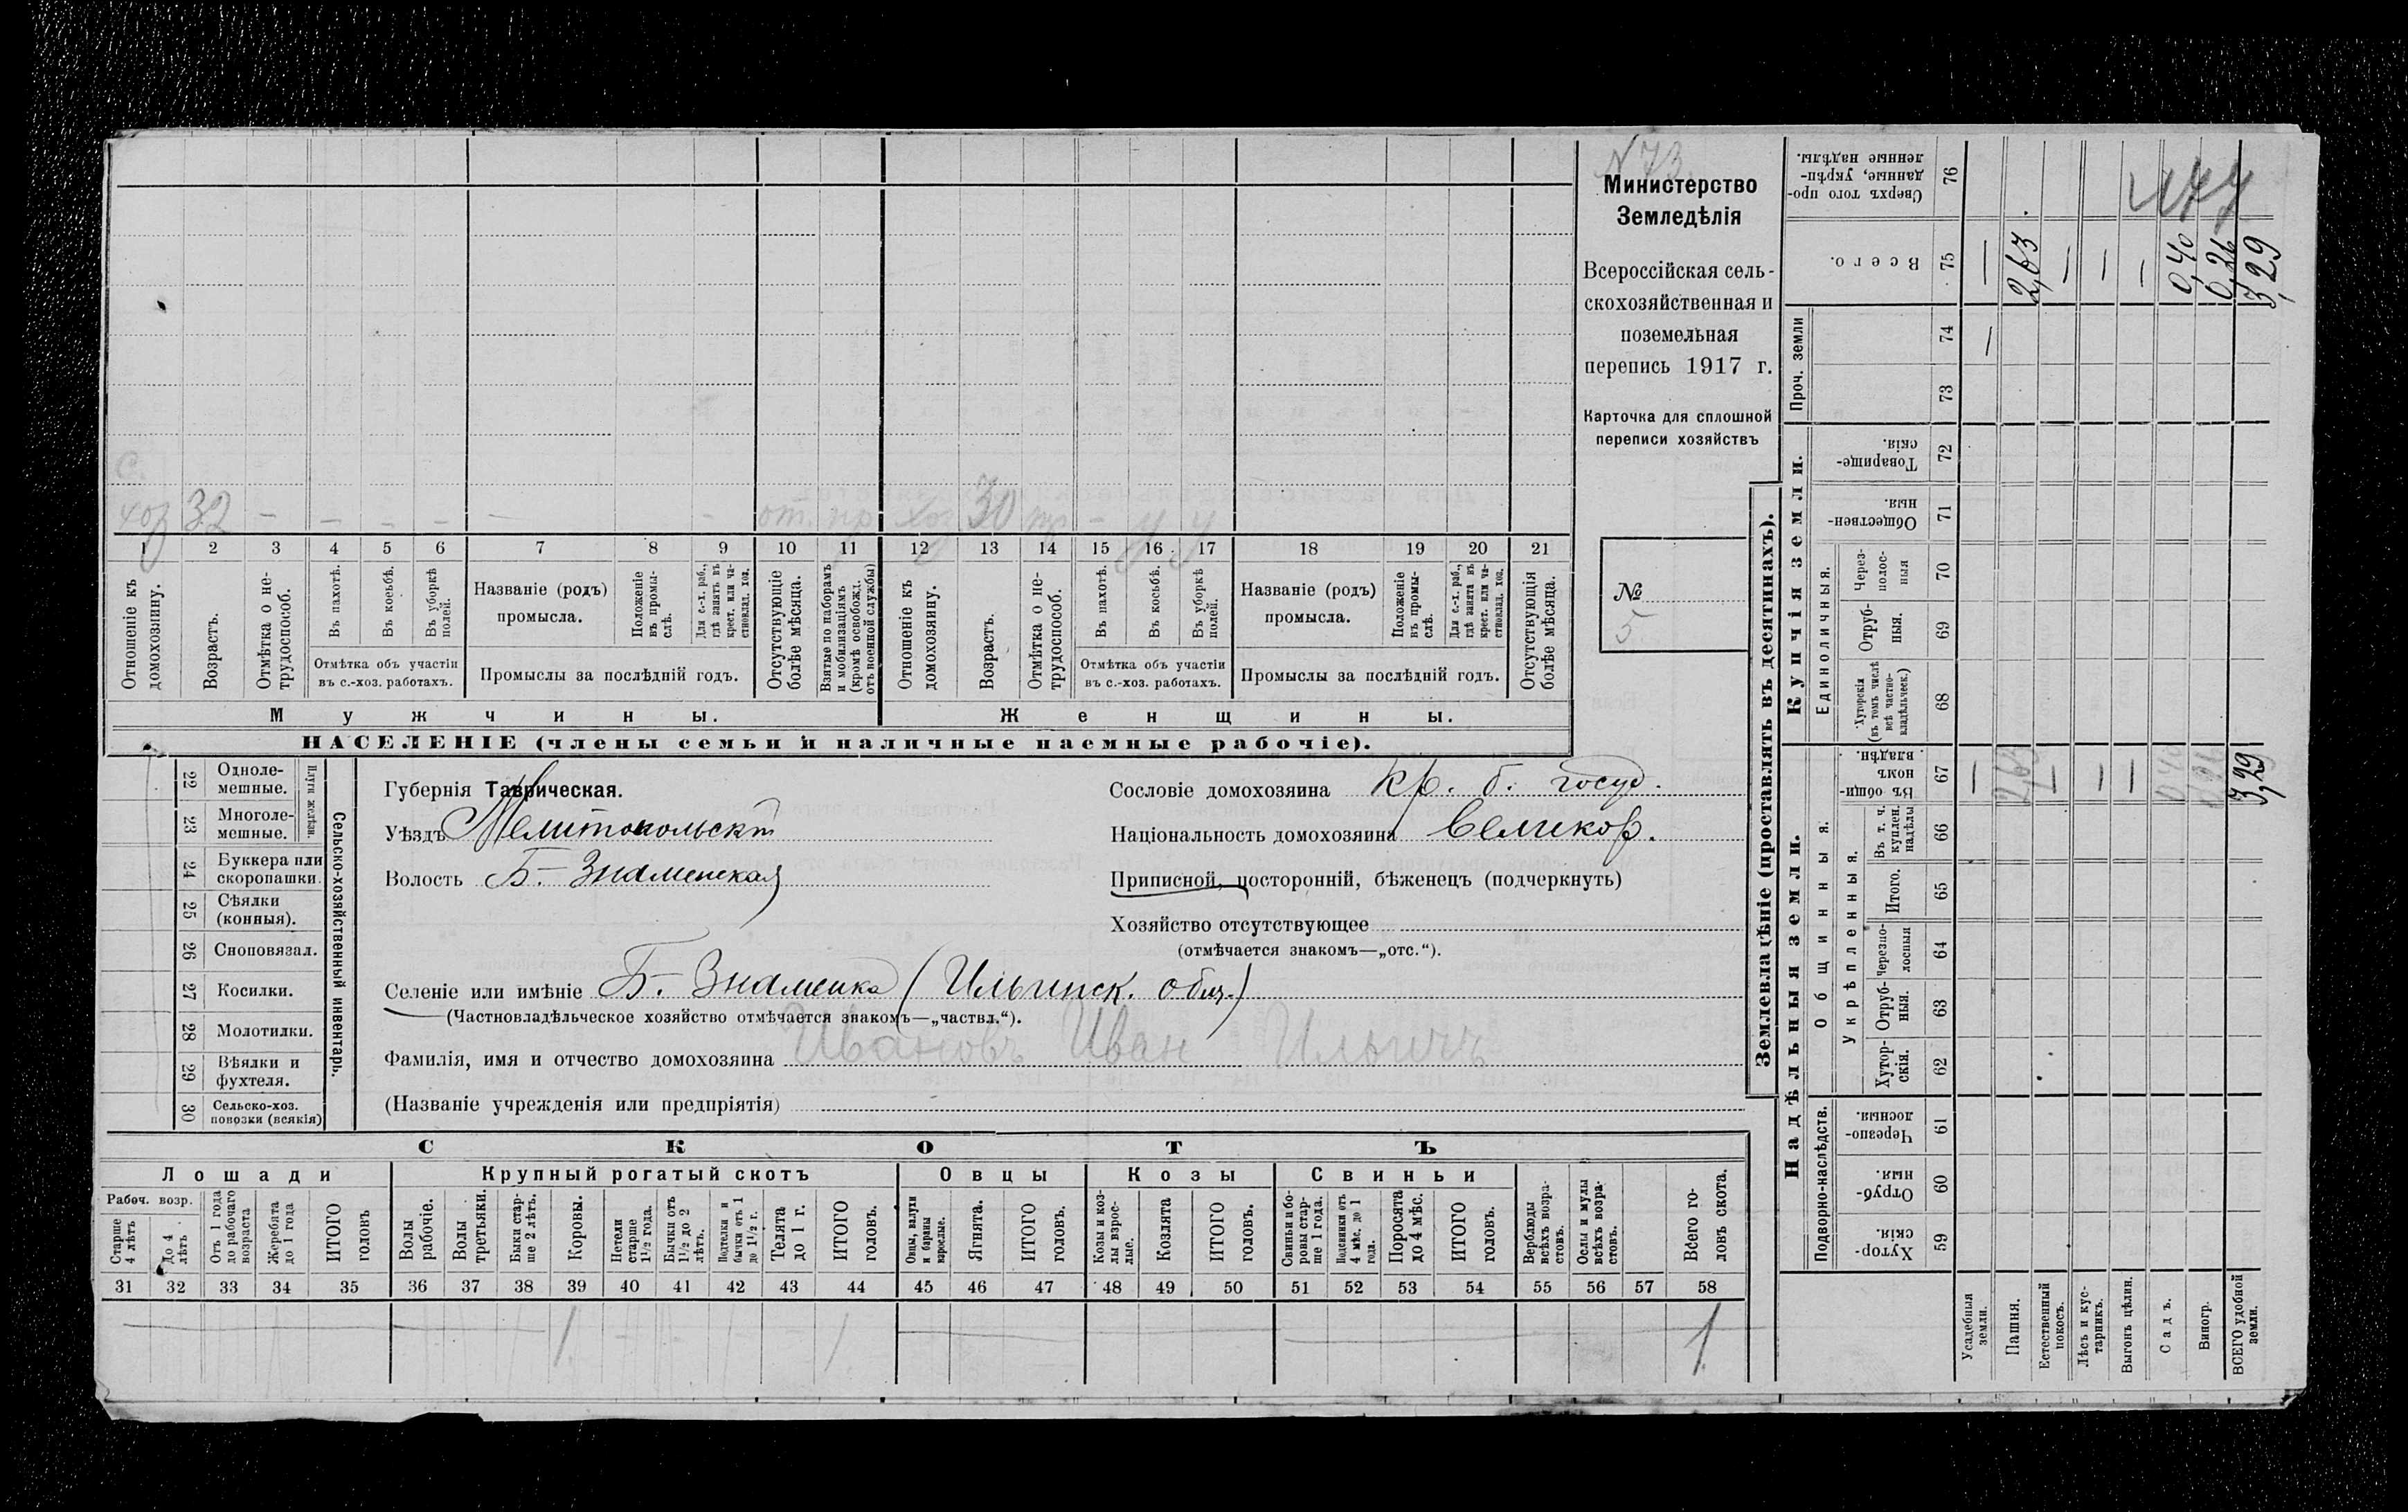 N 73.
Министерство
Земледѣлія
Всероссійская сель-
скохозяйственная и
поземельная
перепись 1917 г.
Карточка для сплошной
переписи хозяйствъ
№
5
хоз 32 – – – – – – от. пр хоз 30 – у у
1 2 3 4 5 6 7 8 9 10 11 12 13 14 15 16 17 18 19 20 21
Отношеніе къ домохозяину.
Возрастъ.
Отмѣтка о не-трудоспособ.
Въ пахотѣ.
Въ косьбѣ.
Въ уборкѣ полей.
Отмѣтка объ участіи
въ с.-хоз. работахъ.
Названіе (родъ)
промысла.
Положеніе въ промы-слѣ.
Для с.-х. раб., гдѣ занятъ въ крест. или ча-стновлад. хоз.
Промыслы за послѣдній годъ.
Отсутствующіе болѣе мѣсяца.
Взятые по наборамъ и мобилизаціямъ (кромѣ освобожд. отъ военной службы)
Отношеніе къ домохозяину.
Возрастъ.
Отмѣтка о не-трудоспособ.
Въ пахотѣ.
Въ косьбѣ.
Въ уборкѣ полей.
Отмѣтка объ участіи
въ с.-хоз. работахъ.
Названіе (родъ)
промысла.
Положеніе въ промы-слѣ.
Для с.-х. раб., гдѣ занята въ крест. или ча-стновлад. хоз.
Промыслы за послѣдній годъ.
Отсутствующія болѣе мѣсяца.
Мужчины.
Женщины.
НАСЕЛЕНІЕ (члены семьи и наличные наемные рабочіе).
Плуги желѣзн.
22 Одноле-мешные.
23 Многоле-мешные.
24 Буккера или скоропашки.
25 Сѣялки (конныя).
26 Сноповязал.
27 Косилки.
28 Молотилки.
29 Вѣялки и фухтеля.
30 Сельско-хоз. повозки (всякія)
Сельско-хозяйственный инвентарь.
Губернія Таврическая.
Уѣздъ Мелитопольскій
Волость Б.-Знаменская
Сословіе домохозяина кр. б. госуд.
Національность домохозяина великор.
Приписной, посторонній, бѣженецъ (подчеркнуть)
Хозяйство отсутствующее
(отмѣчается знакомъ—„отс.“).
Селеніе или имѣніе Б.-Знаменка (Ильинск. общ.)
(Частновладѣльческое хозяйство отмѣчается знакомъ—„частвл.“).
Фамилія, имя и отчество домохозяина Ивановъ Иван Ильичъ
(Названіе учрежденія или предпріятія)
СКОТЪ
Лошади
Крупный рогатый скотъ
Овцы
Козы
Свиньи
Рабоч. возр.
Старше 4 лѣтъ
До 4 лѣтъ
Отъ 1 года до рабочаго возраста
Жеребята до 1 года
ИТОГО головъ
Волы рабочіе.
Волы третьяки.
Быки стар-ше 2 лѣтъ.
Коровы.
Нетели старше 1½ года.
Бычки отъ 1½ до 2 лѣтъ.
Подтелки и бычки отъ 1 до 1½ г.
Телята до 1 г.
ИТОГО головъ.
Овцы, валухи и бараны взрослые.
Ягнята.
ИТОГО головъ.
Козы и коз-лы взрос-лые.
Козлята
ИТОГО головъ.
Свиньи и бо-ровы стар-ше 1 года.
Подсвинки отъ 4 мѣс. до 1 года.
Поросята до 4 мѣс.
ИТОГО головъ.
Верблюды всѣхъ возра-стовъ.
Ослы и мулы всѣхъ возра-стовъ.
Всего го-ловъ скота.
31 32 33 34 35 36 37 38 39 40 41 42 43 44 45 46 47 48 49 50 51 52 53 54 55 56 57 58
1 1 1
Землевладѣніе (проставлять въ десятинахъ).
Надѣльныя земли.
Купчія земли.
Проч. земли
Подворно-наслѣдств.
Общинныя.
Укрѣпленныя.
Единоличныя.
Хутор-скія. 59
Отруб-ныя. 60
Черезпо-лосныя. 61
Хутор-скія. 62
Отруб-ныя. 63
Черезпо-лосныя 64
Итого. 65
Въ т. ч. куплен. надѣлы 66
Въ общин-номъ владѣн. 67
Хуторскія (въ томъ числѣ всѣ частно-владѣльческ.) 68
Отруб-ныя. 69
Через-полос-ныя 70
Обществен-ныя 71
Товарище-скія. 72
73
74
Всего. 75
Сверхъ того про-данные, укрѣп-ленные надѣлы. 76
Усадебныя земли. — —
Пашня. 2,63 2,63
Естественный покосъ. — —
Лѣсъ и кус-тарникъ. — —
Выгонъ цѣлин. — —
Садъ. 0,40 0,40
Виногр. 0,26 0,26
ВСЕГО удобной земли. 3,29 3,29